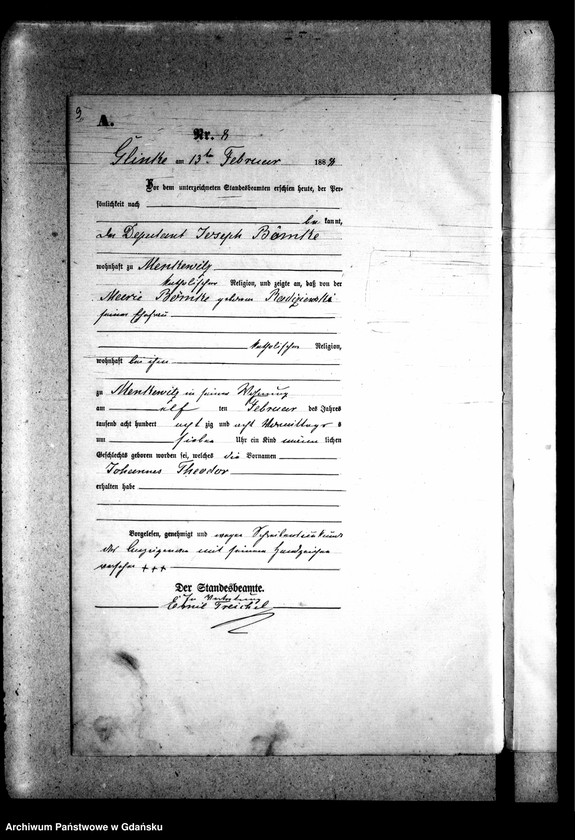 9
A.
Nr. 8
Glinke am 13ten Februar 1888
Vor dem unterzeichneten Standesbeamten erschien heute, der Per-
sönlichkeit nach
be kannt,
der Deputant Joseph Bömke
wohnhaft zu Menkewitz
katholischer Religion, und zeigte an, daß von der
Marie Bömke geborene
seiner Ehefrau
katholischer Religion,
wohnhaft bei ihm
zu Menkewitz in seiner Wohnung
am elf ten Februar des Jahres
tausend acht hundert acht zig und acht Vormittags
um sieben Uhr ein Kind männ lichen
Geschlechts geboren worden sei, welches die Vornamen
Johannes Theodor
erhalten habe
Vorgelesen, genehmigt und wegen Schreibensunkunde
des Anzeigenden mit seinem Handzeichen
versehen +++
Der Standesbeamte.
In Vertretung
Emil Treichel
Archiwum Państwowe w Gdańsku